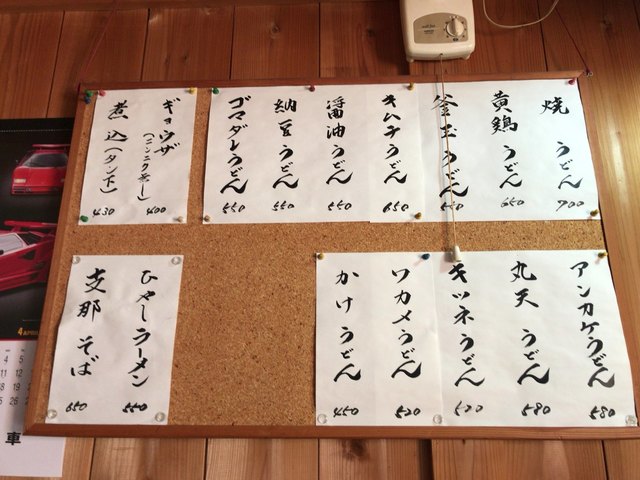 焼 うどん 700
黄鶏 うどん 650
釜玉うどん
キムチうどん 650
醤油うどん 550
納豆うどん 550
ゴマダレうどん 550
ギョウザ (ニンニク無し) 400
煮込(タン下) 430
アンカケうどん 580
丸天 うどん 580
キツネうどん 520
ワカメうどん 520
かけうどん 450
ひやしラーメン 550
支那そば 650
4 APRIL
車